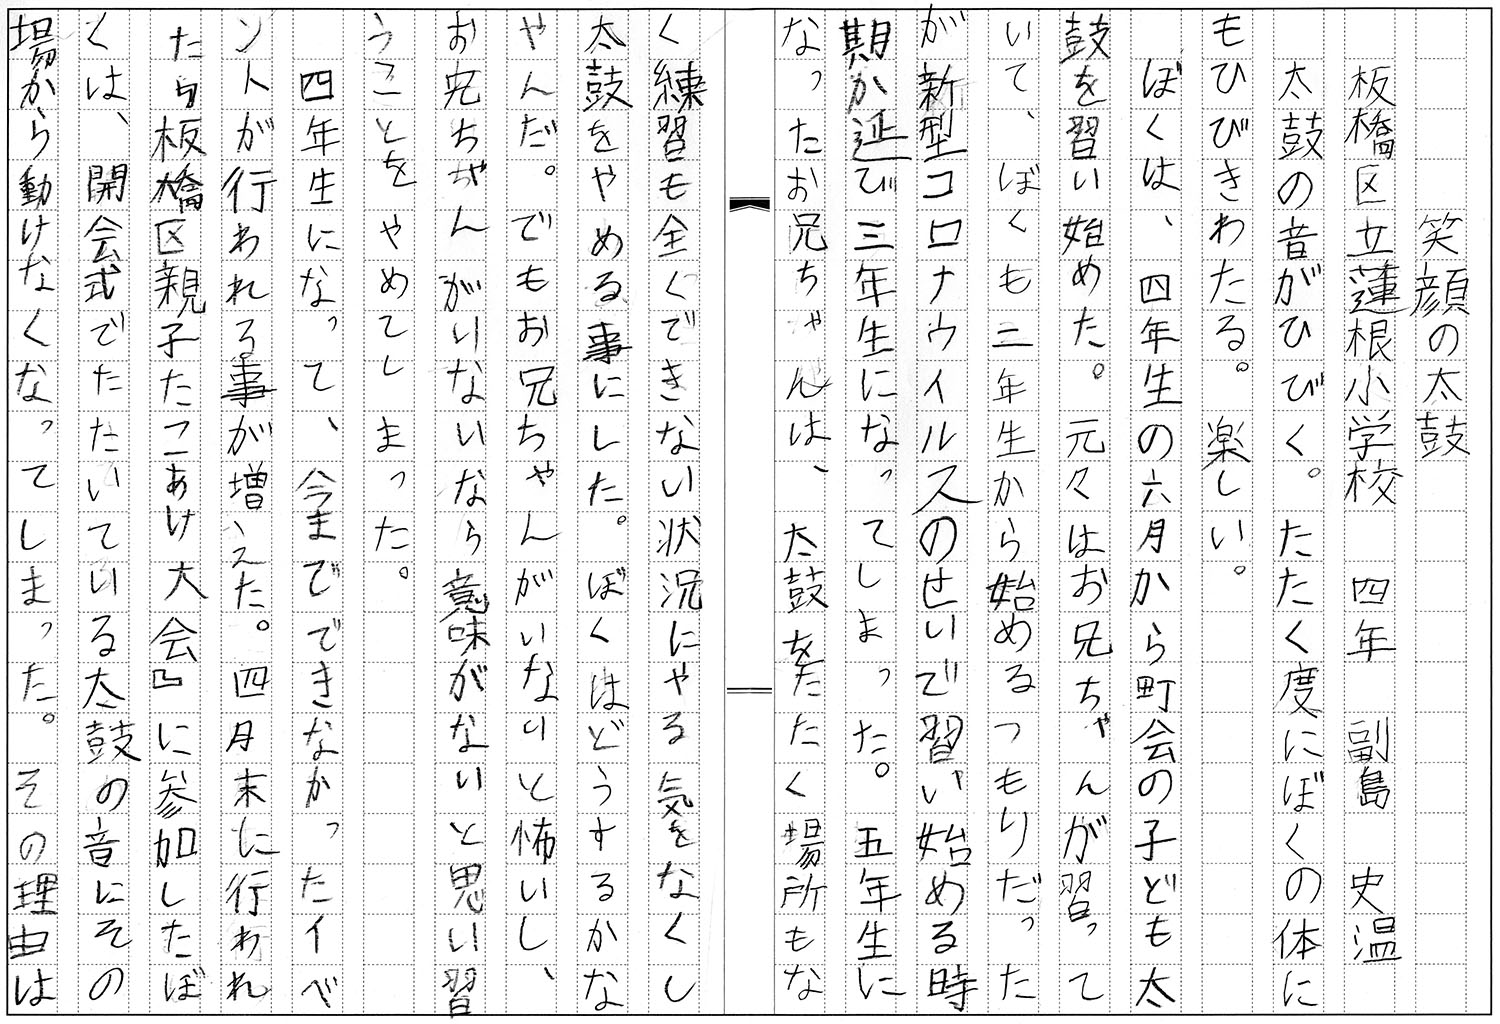 笑顔の太鼓
板橋区立蓮根小学校　四年　副島　史温
太鼓の音がひびく。たたく度にぼくの体に
もひびきわたる。楽しい。
ぼくは、四年生の六月から町会の子ども太
鼓を習い始めた。元々はお兄ちゃんが習って
いて、ぼくも二年生から始めるつもりだった
が新型コロナウイルスのせいで習い始める時
期が延び三年生になってしまった。五年生に
なったお兄ちゃんは、太鼓をたたく場所もな
く練習も全くできない状況にやる気をなくし
太鼓をやめる事にした。ぼくはどうするかな
やんだ。でもお兄ちゃんがいないと怖いし、
お兄ちゃんがいないなら意味がないと思い習
うことをやめてしまった。
四年生になって、今までできなかったイベ
ントが行われる事が増えた。四月末に行われ
た『板橋区親子たこあげ大会』に参加したぼ
くは、開会式でたたいている太鼓の音にその
場から動けなくなってしまった。その理由は